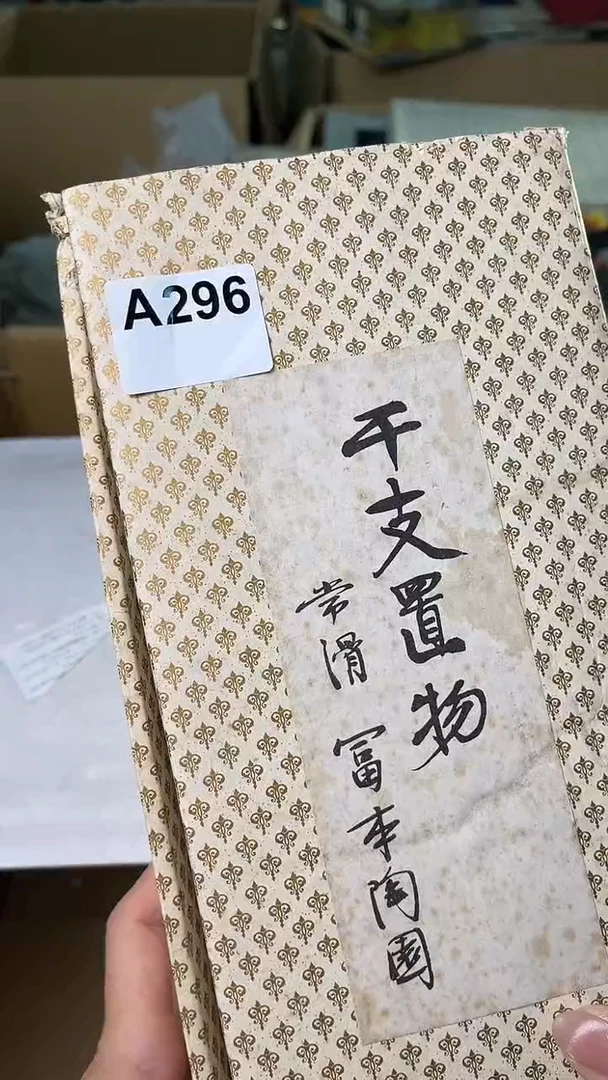 A296
干支置物
常滑 冨本陶園